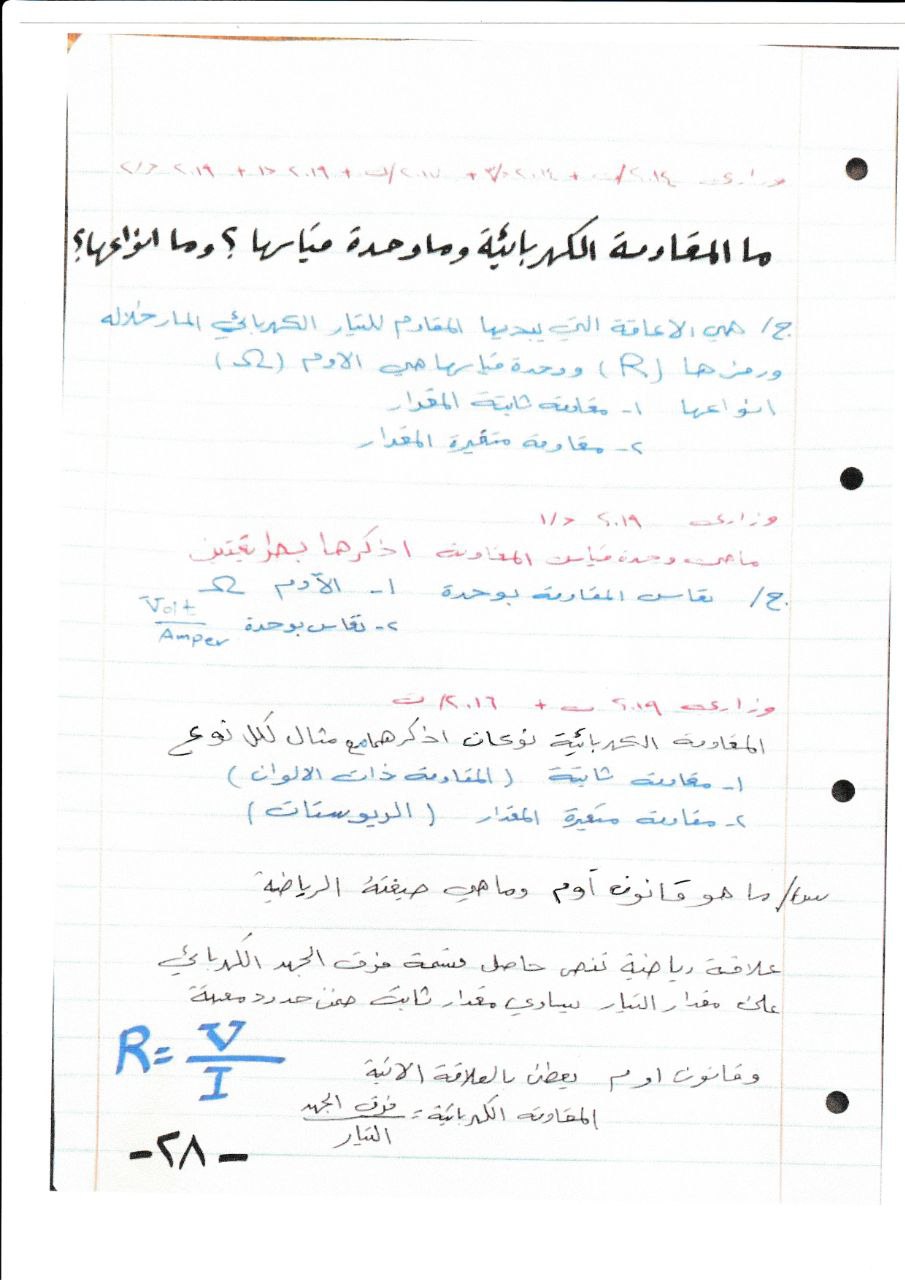 وزاري ٢٠١٤/ت + ٢٠١٤/د٣ + ٢٠١٧/ت + ٢٠١٩ د١ + ٢٠١٩ د/٢
ما المقاومة الكهربائية وما وحدة قياسها ؟ وما انواعها؟
ج/ هي الاعاقة التي يبديها المقاوم للتيار الكهربائي المار خلاله
ورمزها (R) ووحدة قياسها هي الاوم (Ω)
انواعها ١- مقاومة ثابتة المقدار
٢- مقاومة متغيرة المقدار
وزاري ٢٠١٩ د/١
ماهي وحدة قياس المقاومة اذكرها بطريقتين
ج/ تقاس المقاومة بوحدة ١- الأوم Ω
٢- تقاس بوحدة Volt / Amper
وزاري ٢٠١٩ ت + ٢٠١٦/ت
المقاومة الكهربائية نوعان اذكرهما مع مثال لكل نوع
١- مقاومة ثابتة (المقاومة ذات الالوان)
٢- مقاومة متغيرة المقدار (الريوستات)
س/ ما هو قانون أوم وماهي صيغتة الرياضية
علاقة رياضية تنص حاصل قسمة فرق الجهد الكهربائي
على مقدار التيار يساوي مقدار ثابت ضمن حدود معينة
وقانون اوم يعطى بالعلاقة الاتية
R = V / I
المقاومة الكهربائية = فرق الجهد / التيار
-٢٨-